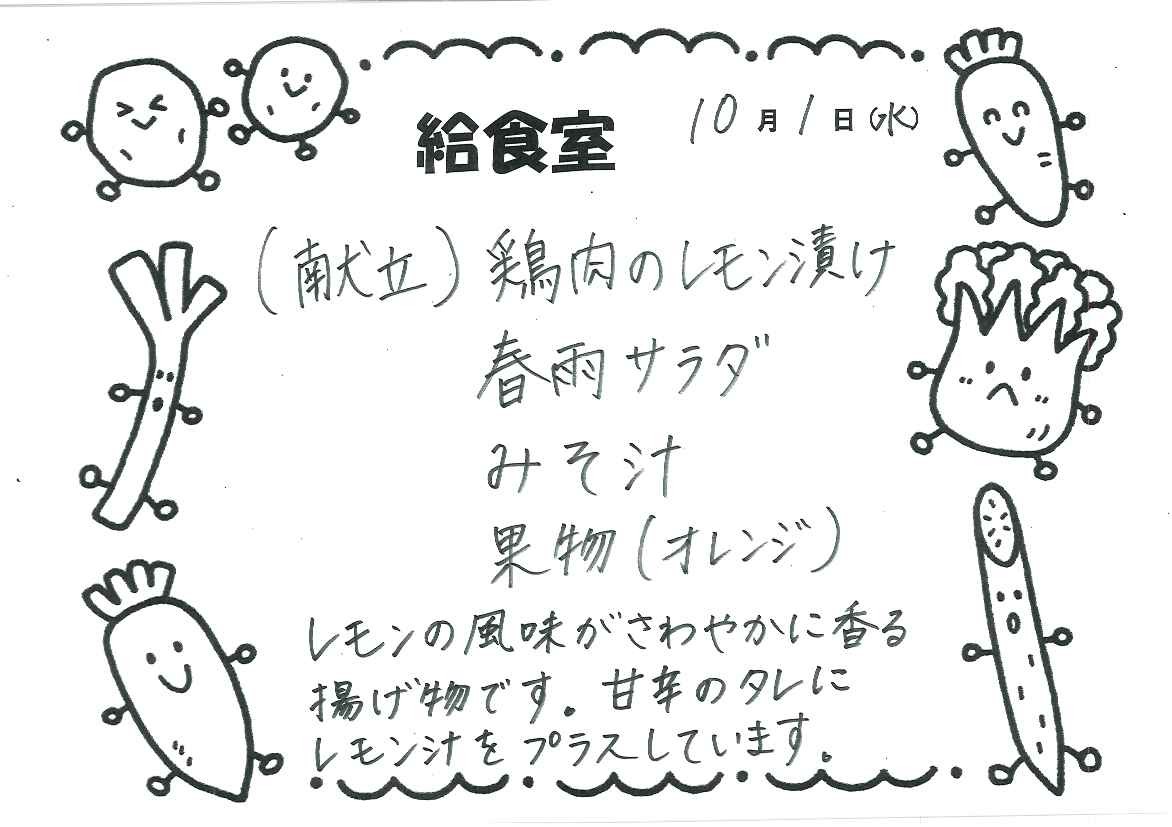 給食室 10月1日(水)
(献立) 鶏肉のレモン漬け
春雨サラダ
みそ汁
果物(オレンジ)
レモンの風味がさわやかに香る
揚げ物です。甘辛のタレに
レモン汁をプラスしています。